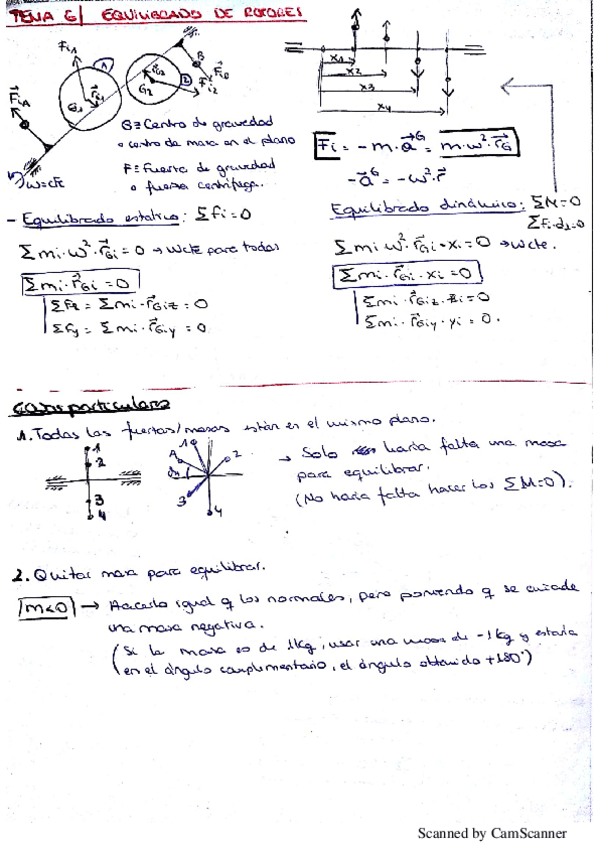 TEMA 6| EQUILIBRADO DE ROTORES
Fi1
1
B
FiB
G1
rG1
G2
rG2
2
Fi2
FiA
A
w=cte
x1
x2
x3
x4
G≡Centro de gravedad
o centro de masa en el plano
F≡Fuerza de gravedad
o fuerza centrífuga.
Fi = -m·a^G = m·w²·rG
-a^G = -w²·r
- Equilibrado estático: ΣFi=0
Σmi·w²·rGi=0 → wcte para todas
Σmi·rGi=0
ΣFz = Σmi·rGiz = 0
ΣFy = Σmi·rGiy = 0
Equilibrado dinámico: ΣM=0
ΣFi·di=0
Σmi w²·rGi·xi=0 → wcte.
Σmi·rGi·xi=0
Σmi·rGiz·zi=0
Σmi·rGiy·yi=0.
Casos particulares
1. Todas las fuerzas/masas están en el mismo plano.
1
2
3
4
1
A
2
3
4
→ Solo haría falta una masa
para equilibrar.
(No haría falta hacer los ΣM=0).
2. Quitar masa para equilibrar.
m<0 → Hacerlo igual q los normales, pero poniendo q se añade
una masa negativa.
(Si la masa es de 1kg, usar una masa de -1kg y estaría
en el ángulo complementario, el ángulo obtenido +180°)
Scanned by CamScanner